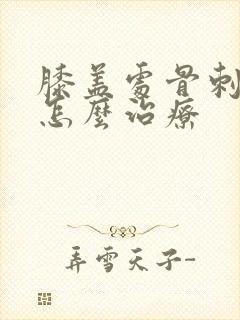 膝盖處骨刺
怎麼治療
弄雪天子-